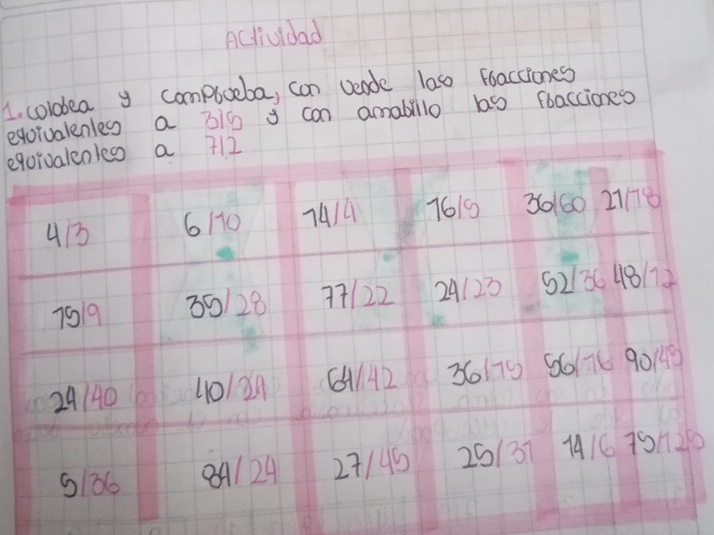 Actividad
1. colorea y comprueba, con verde las fracciones
equivalentes a 3/5 y con amarillo las fracciones
equivalentes a 7/2
4/3 6/10 14/4 16/5 36/60 21/18
15/9 35/28 77/22 24/23 52/36 48/12
24/40 40/24 64/42 36/15 56/16 90/45
5/36 84/24 27/45 25/31 14/6 75/125